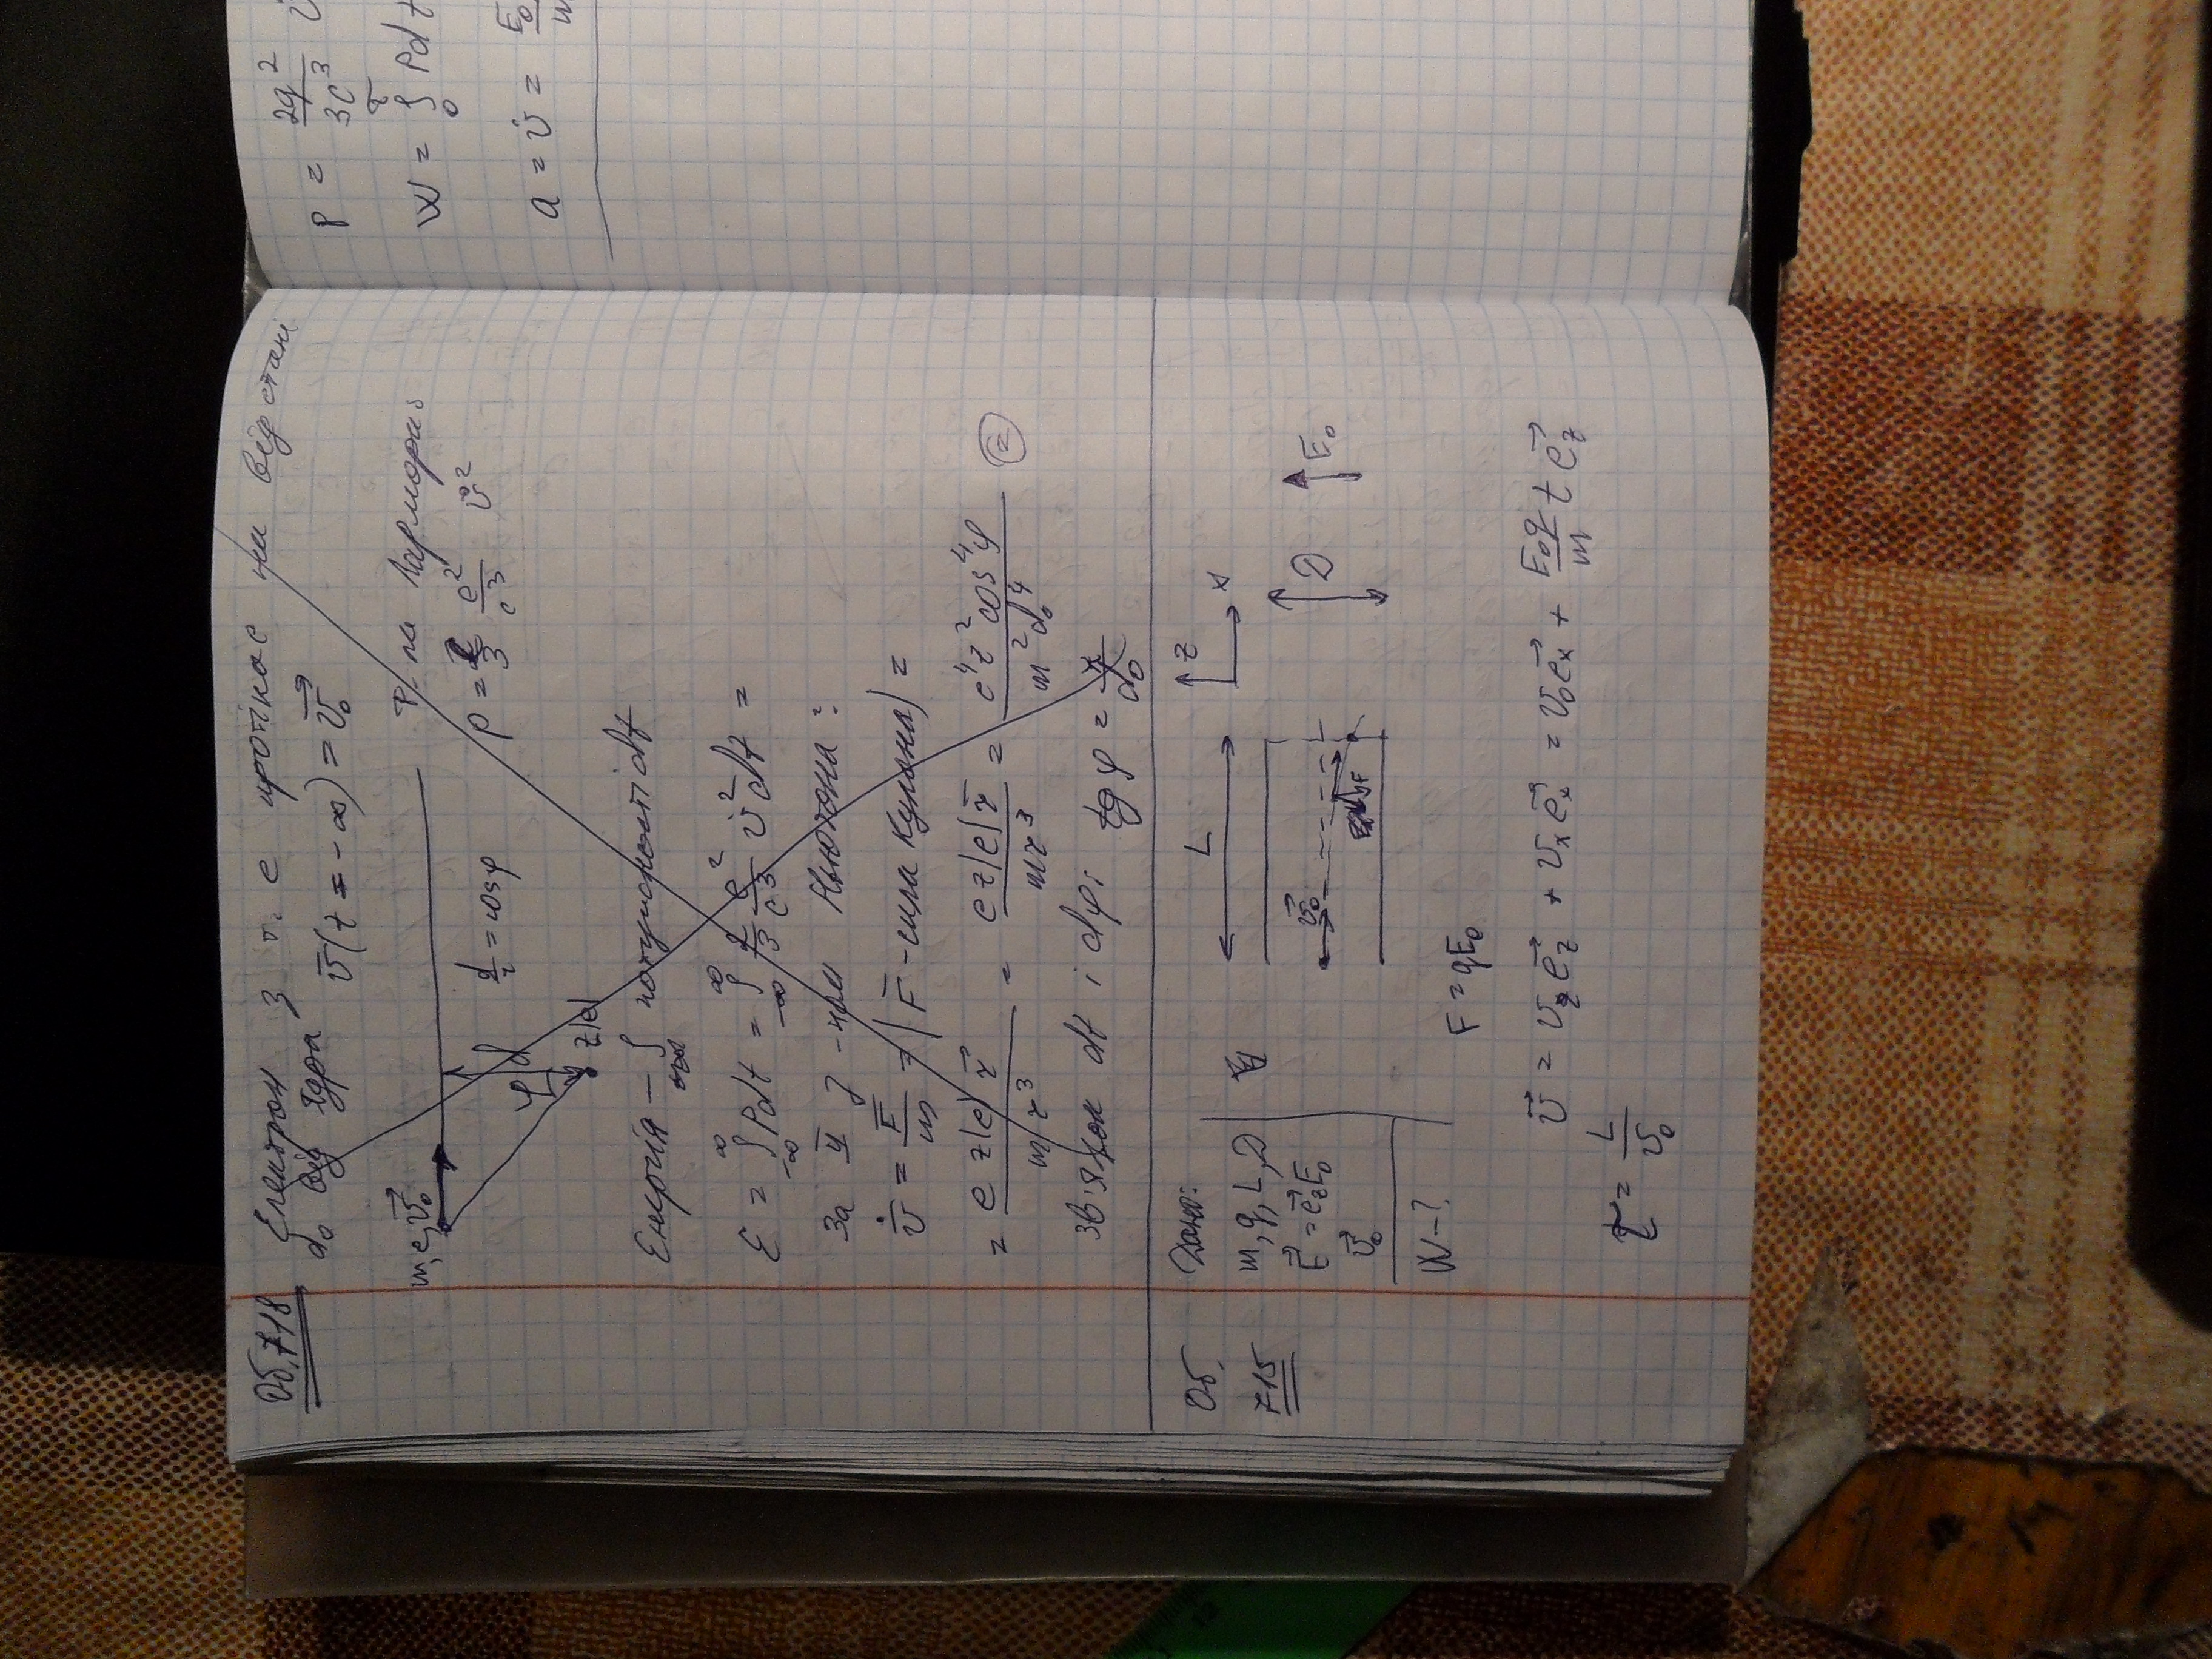 Об. 718
Електрон з т. е пролітає на відстані
d₀ від ядра v̄(t = -∞) = v⃗₀
m, e, v⃗₀
φ
d
z|e|
d/r = cosφ
Ф-ла Лармора:
P = 2/3 e²/c³ v̇²
Енергія - ∫ потужності dt
ε = ∫_{-∞}^{∞} Pdt = ∫_{-∞}^{∞} 2/3 e²/c³ v̇² dt =
За II з-ном Ньютона:
v̄̇ = F̄/m = | F̄ - сила Кулона | =
= e z|e| r⃗ / m r³ = e z|e| r̄ / m r³ = e⁴z² cos⁴φ / m² d₀⁴ (=)
Зв'язок dt і dφ: tg φ = x/d₀
Об. 715
Дано:
m, q, L, D
E⃗ = e⃗_z E₀
v⃗₀
W - ?
L
z
x
v⃗₀
D
E⃗₀
F = qE₀
v⃗ = v_z e⃗_z + v_x e⃗_x = v₀ e⃗_x + E₀q/m t e⃗_z
τ = L/v₀
P = 2q²/3c³
W = ∫₀^τ Pdt
a = v̇ =